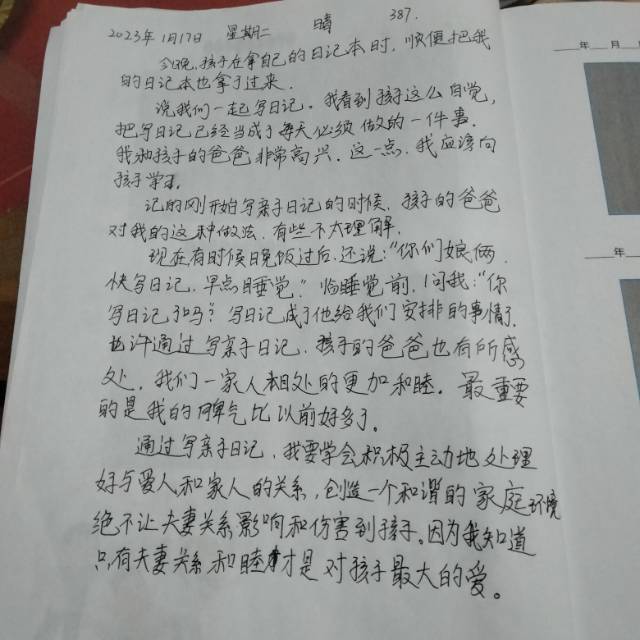 2023年1月17日 星期二 晴 387.
今晚,孩子在拿自己的日记本时,顺便把我
的日记本也拿了过来.
说我们一起写日记。我看到孩子这么自觉,
把写日记已经当成了每天必须做的一件事.
我和孩子的爸爸非常高兴.这一点,我应该向
孩子学习.
记的刚开始写亲子日记的时候.孩子的爸爸
对我的这种做法.有些不太理解.
现在有时候晚饭过后.还说:“你们娘俩.
快写日记.早点睡觉.”临睡觉前.问我:“你
写日记了吗?写日记成了他给我们安排的事情了.
也许通过写亲子日记.孩子的爸爸也有所感
处.我们一家人相处的更加和睦.最重要
的是我的脾气比以前好多了.
通过写亲子日记,我要学会积极主动地处理
好与爱人和家人的关系,创造一个和谐的家庭环境
绝不让夫妻关系影响和伤害到孩子。因为我知道
只有夫妻关系和睦才是对孩子最大的爱。
年 月
年